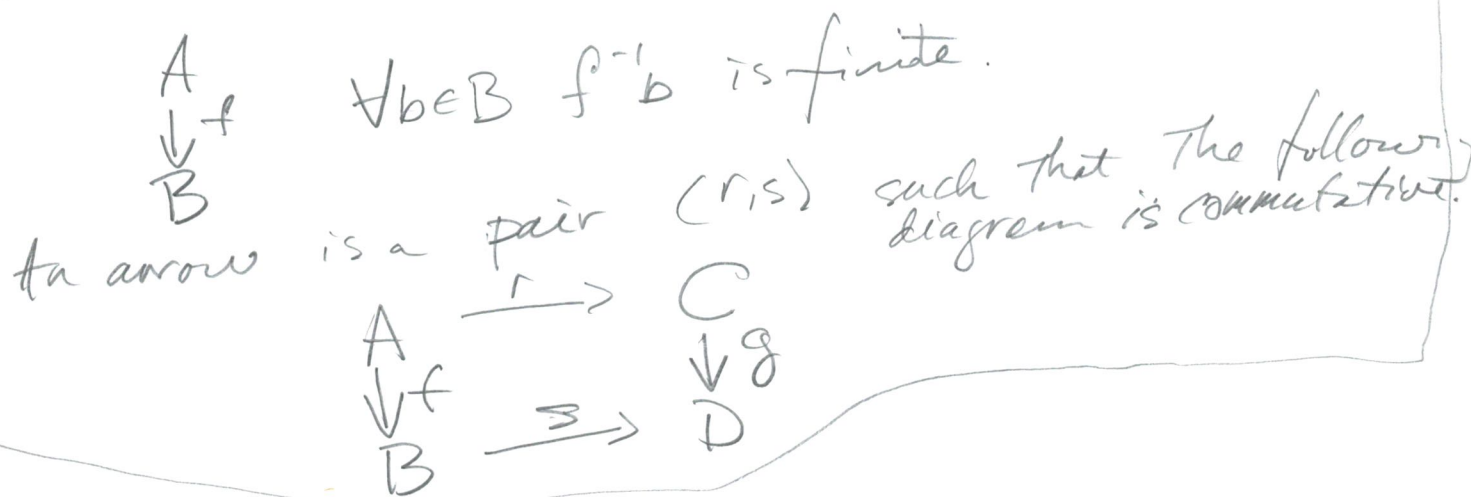 A
↓ f
B
∀b∈B f⁻¹b is finite.
An arrow is a pair (r,s) such that The following
diagram is commutative.
A r→ C
↓ f ↓ g
B s→ D